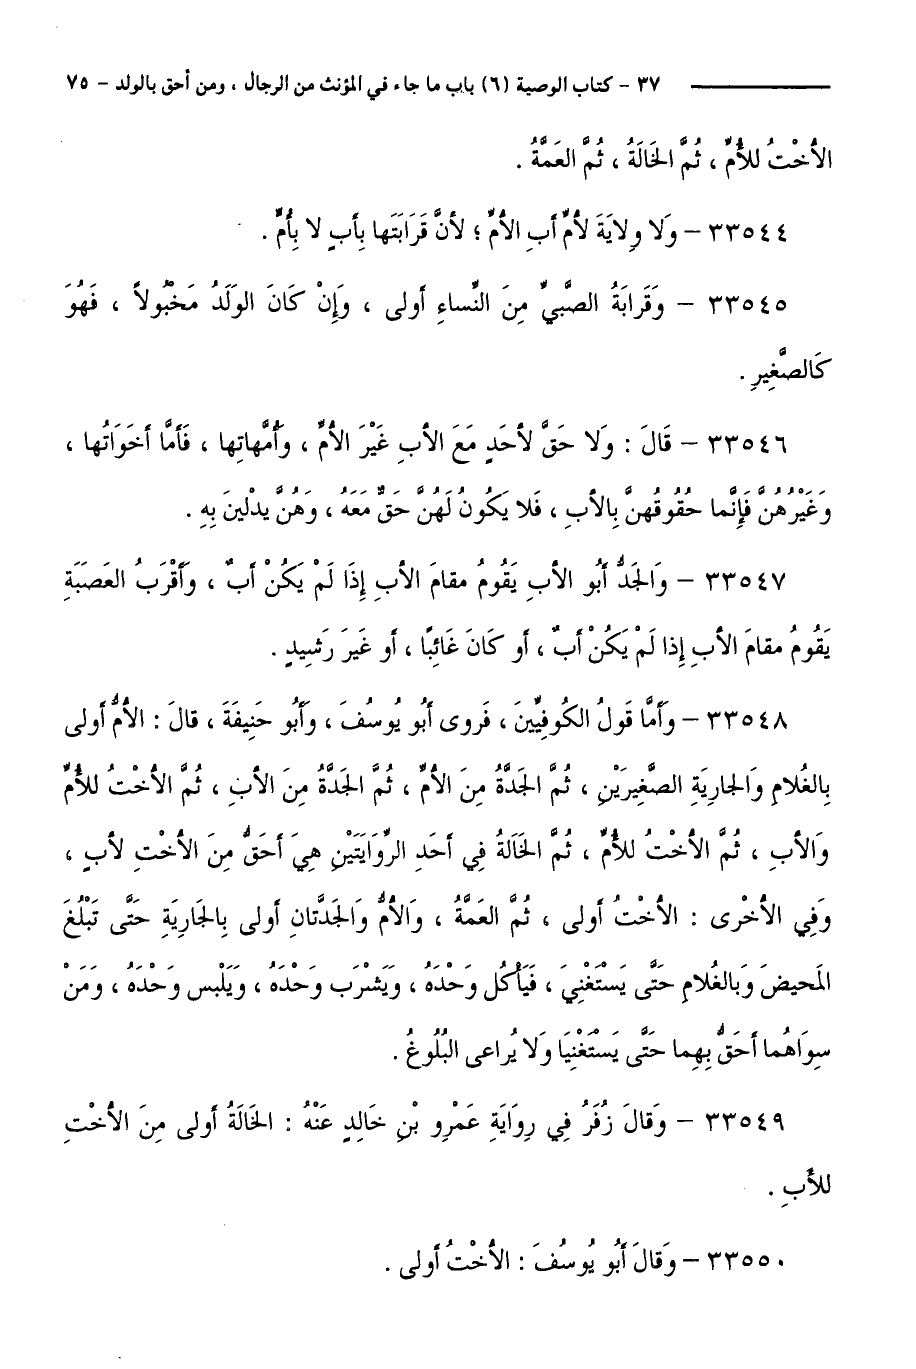 ٣٧ – كتاب الوصية (٦) باب ما جاء في المؤنث من الرجال ، ومن أحق بالولد – ٧٥
الأُخْتُ للأُمِّ ، ثُمَّ الخَالَةُ ، ثُمَّ العَمَّةُ .
٣٣٥٤٤ – وَلا وِلايَةَ لأمِّ أبِ الأمِّ ؛ لأنَّ قَرَابَتَها بِأَبٍ لا بِأُمٍّ .
٣٣٥٤٥ – وَقَرابَةُ الصَّبِيِّ مِنَ النِّساءِ أولى ، وَإِنْ كَانَ الوَلَدُ مَخْبُولاً ، فَهُوَ
كَالصَّغِيرِ .
٣٣٥٤٦ – قَالَ : وَلا حَقَّ لأحَدٍ مَعَ الأبِ غَيْرَ الأمِّ ، وَأُمَّهاتِها ، فَأمَّا أخَوَاتُها ،
وَغَيْرُهُنَّ فَإِنَّما حُقُوقُهنَّ بِالأبِ ، فَلا يَكُونُ لَهُنَّ حَقٌّ مَعَهُ ، وَهُنَّ يدْلينَ بِهِ .
٣٣٥٤٧ – وَالجَدُّ أبُو الأبِ يَقُومُ مقامَ الأبِ إِذَا لَمْ يَكُنْ أبٌ ، وَأقْرَبُ العَصَبَةِ
يَقُومُ مقامَ الأبِ إِذا لَمْ يَكُنْ أبٌ ، أو كَانَ غَائِبًا ، أو غَيرَ رَشيِدٍ .
٣٣٥٤٨ – وَأمَّا قَولُ الكُوفِيِّينَ ، فَروى أبُو يُوسُفَ ، وَأبُو حَنِيفَةَ ، قالَ : الأمُّ أولى
بِالغُلامِ وَالجارِيَةِ الصَّغِيرَيْنِ ، ثُمَّ الجَدَّةُ مِنَ الأمِّ ، ثُمَّ الجَدَّةُ مِنَ الأبِ ، ثُمَّ الأخْتُ للأُمِّ
وَالأبِ ، ثُمَّ الأخْتُ للأُمِّ ، ثُمَّ الخَالَةُ فِي أحَدِ الرِّوَايَتَيْنِ هِيَ أحَقُّ مِنَ الأخْتِ لأبٍ ،
وَفِي الأخْرى : الأخْتُ أولى ، ثُمَّ العَمَّةُ ، وَالأمُّ وَالجَدَّتان أولى بِالجَارِيَةِ حَتَّى تَبْلُغَ
المَحيضَ وَبِالغُلامِ حَتَّى يَسْتَغْنِيَ ، فَيَأْكُل وَحْدَهُ ، وَيَشْرَب وَحْدَهُ ، وَيَلْبس وَحْدَهُ ، وَمَنْ
سِوَاهُما أحَقُّ بِهِما حَتَّى يَسْتَغْنِيَا وَلا يُراعى البُلُوغُ .
٣٣٥٤٩ – وَقالَ زُفَرُ فِي رِوَايَةِ عَمْرِو بْنِ خَالِدٍ عَنْهُ : الخَالَةُ أولى مِنَ الأخْتِ
للأَبِ .
٣٣٥٥٠ – وَقالَ أبُو يُوسُفَ : الأخْتُ أولى .